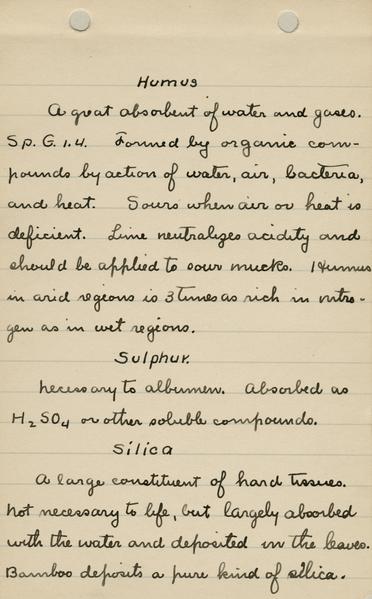 Humus
A great absorbent of water and gases.
Sp. G. 1.4. Formed by organic com-
pounds by action of water, air, bacteria,
and heat. Sours when air or heat is
deficient. Lime neutralizes acidity and
should be applied to sour mucks. Humus
in arid regions is 3 times as rich in nitro-
gen as in wet regions.
Sulphur.
necessary to albumen. Absorbed as
H₂SO₄ or other soluble compounds.
Silica
A large constituent of hard tissues.
not necessary to life, but largely absorbed
with the water and deposited in the leaves.
Bamboo deposits a pure kind of silica.